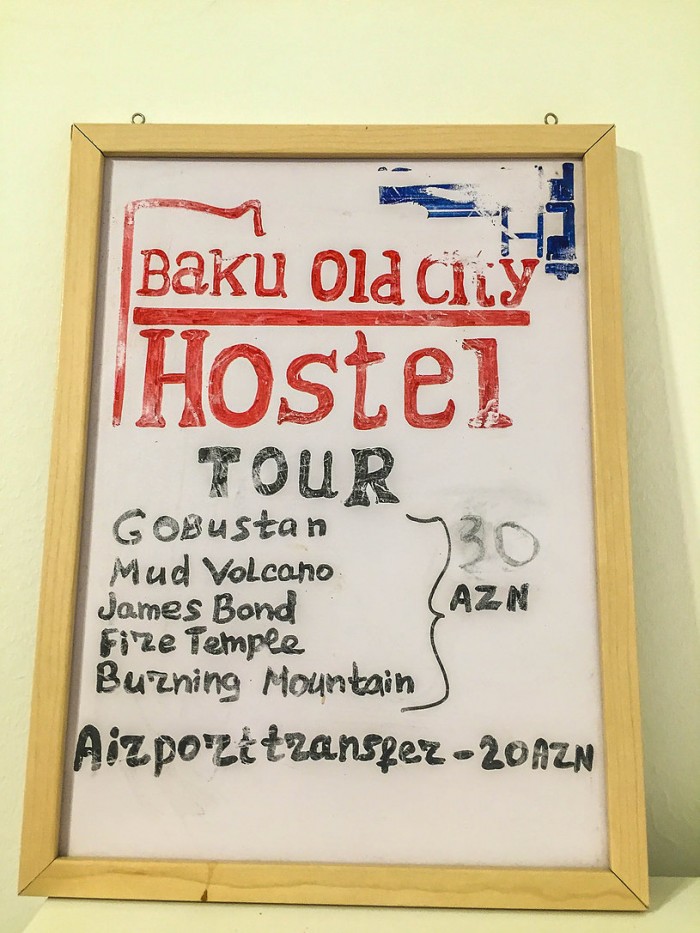 Baku Old City
Hostel
TOUR
Gobustan
Mud Volcano
James Bond
Fire Temple
Burning Mountain
30
AZN
Airporttransfer - 20AZN